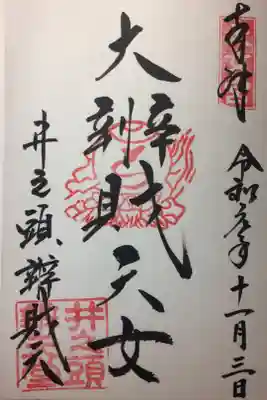 奉拝
令和元年十一月三日
大辨財天女
井之頭辨財天
井之頭